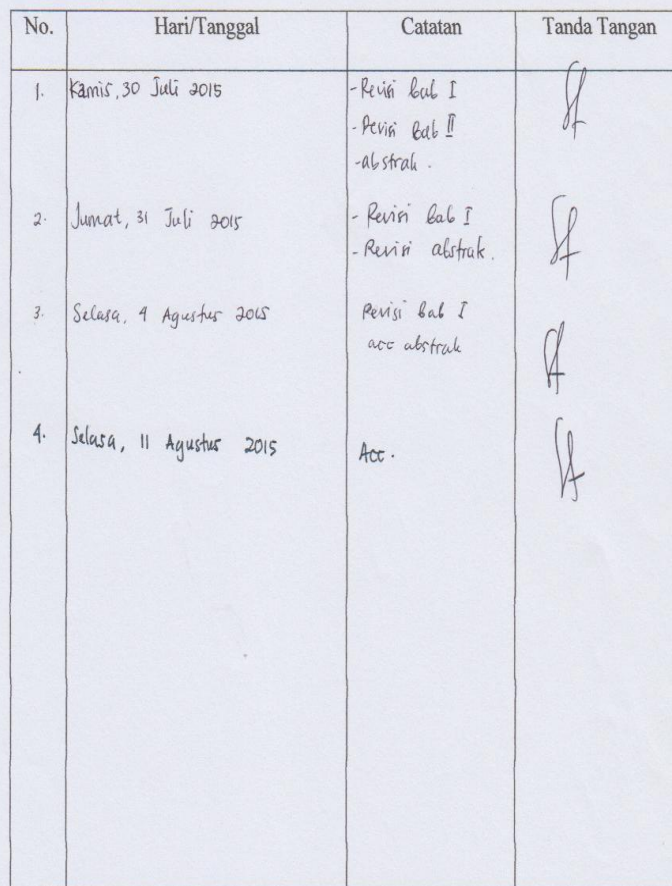 No. Hari/Tanggal Catatan Tanda Tangan
1. Kamis, 30 Juli 2015 - Revisi bab I
- Revisi Bab II
- abstrak.
2. Jumat, 31 Juli 2015 - Revisi bab I
- Revisi abstrak.
3. Selasa, 4 Agustus 2015 Revisi bab I
acc abstrak
4. Selasa, 11 Agustus 2015 Acc.